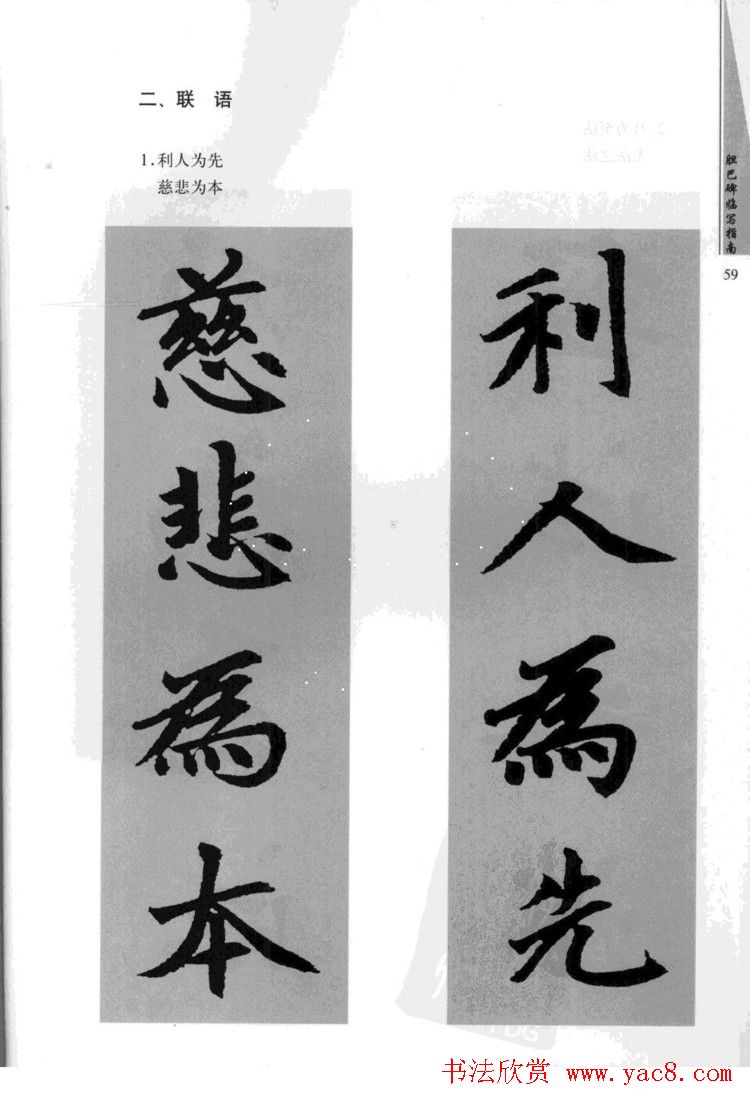 二、联 语
1.利人为先
慈悲为本
利人為先
慈悲為本
胆巴碑临写指南
59
书法欣赏 www.yac8.com